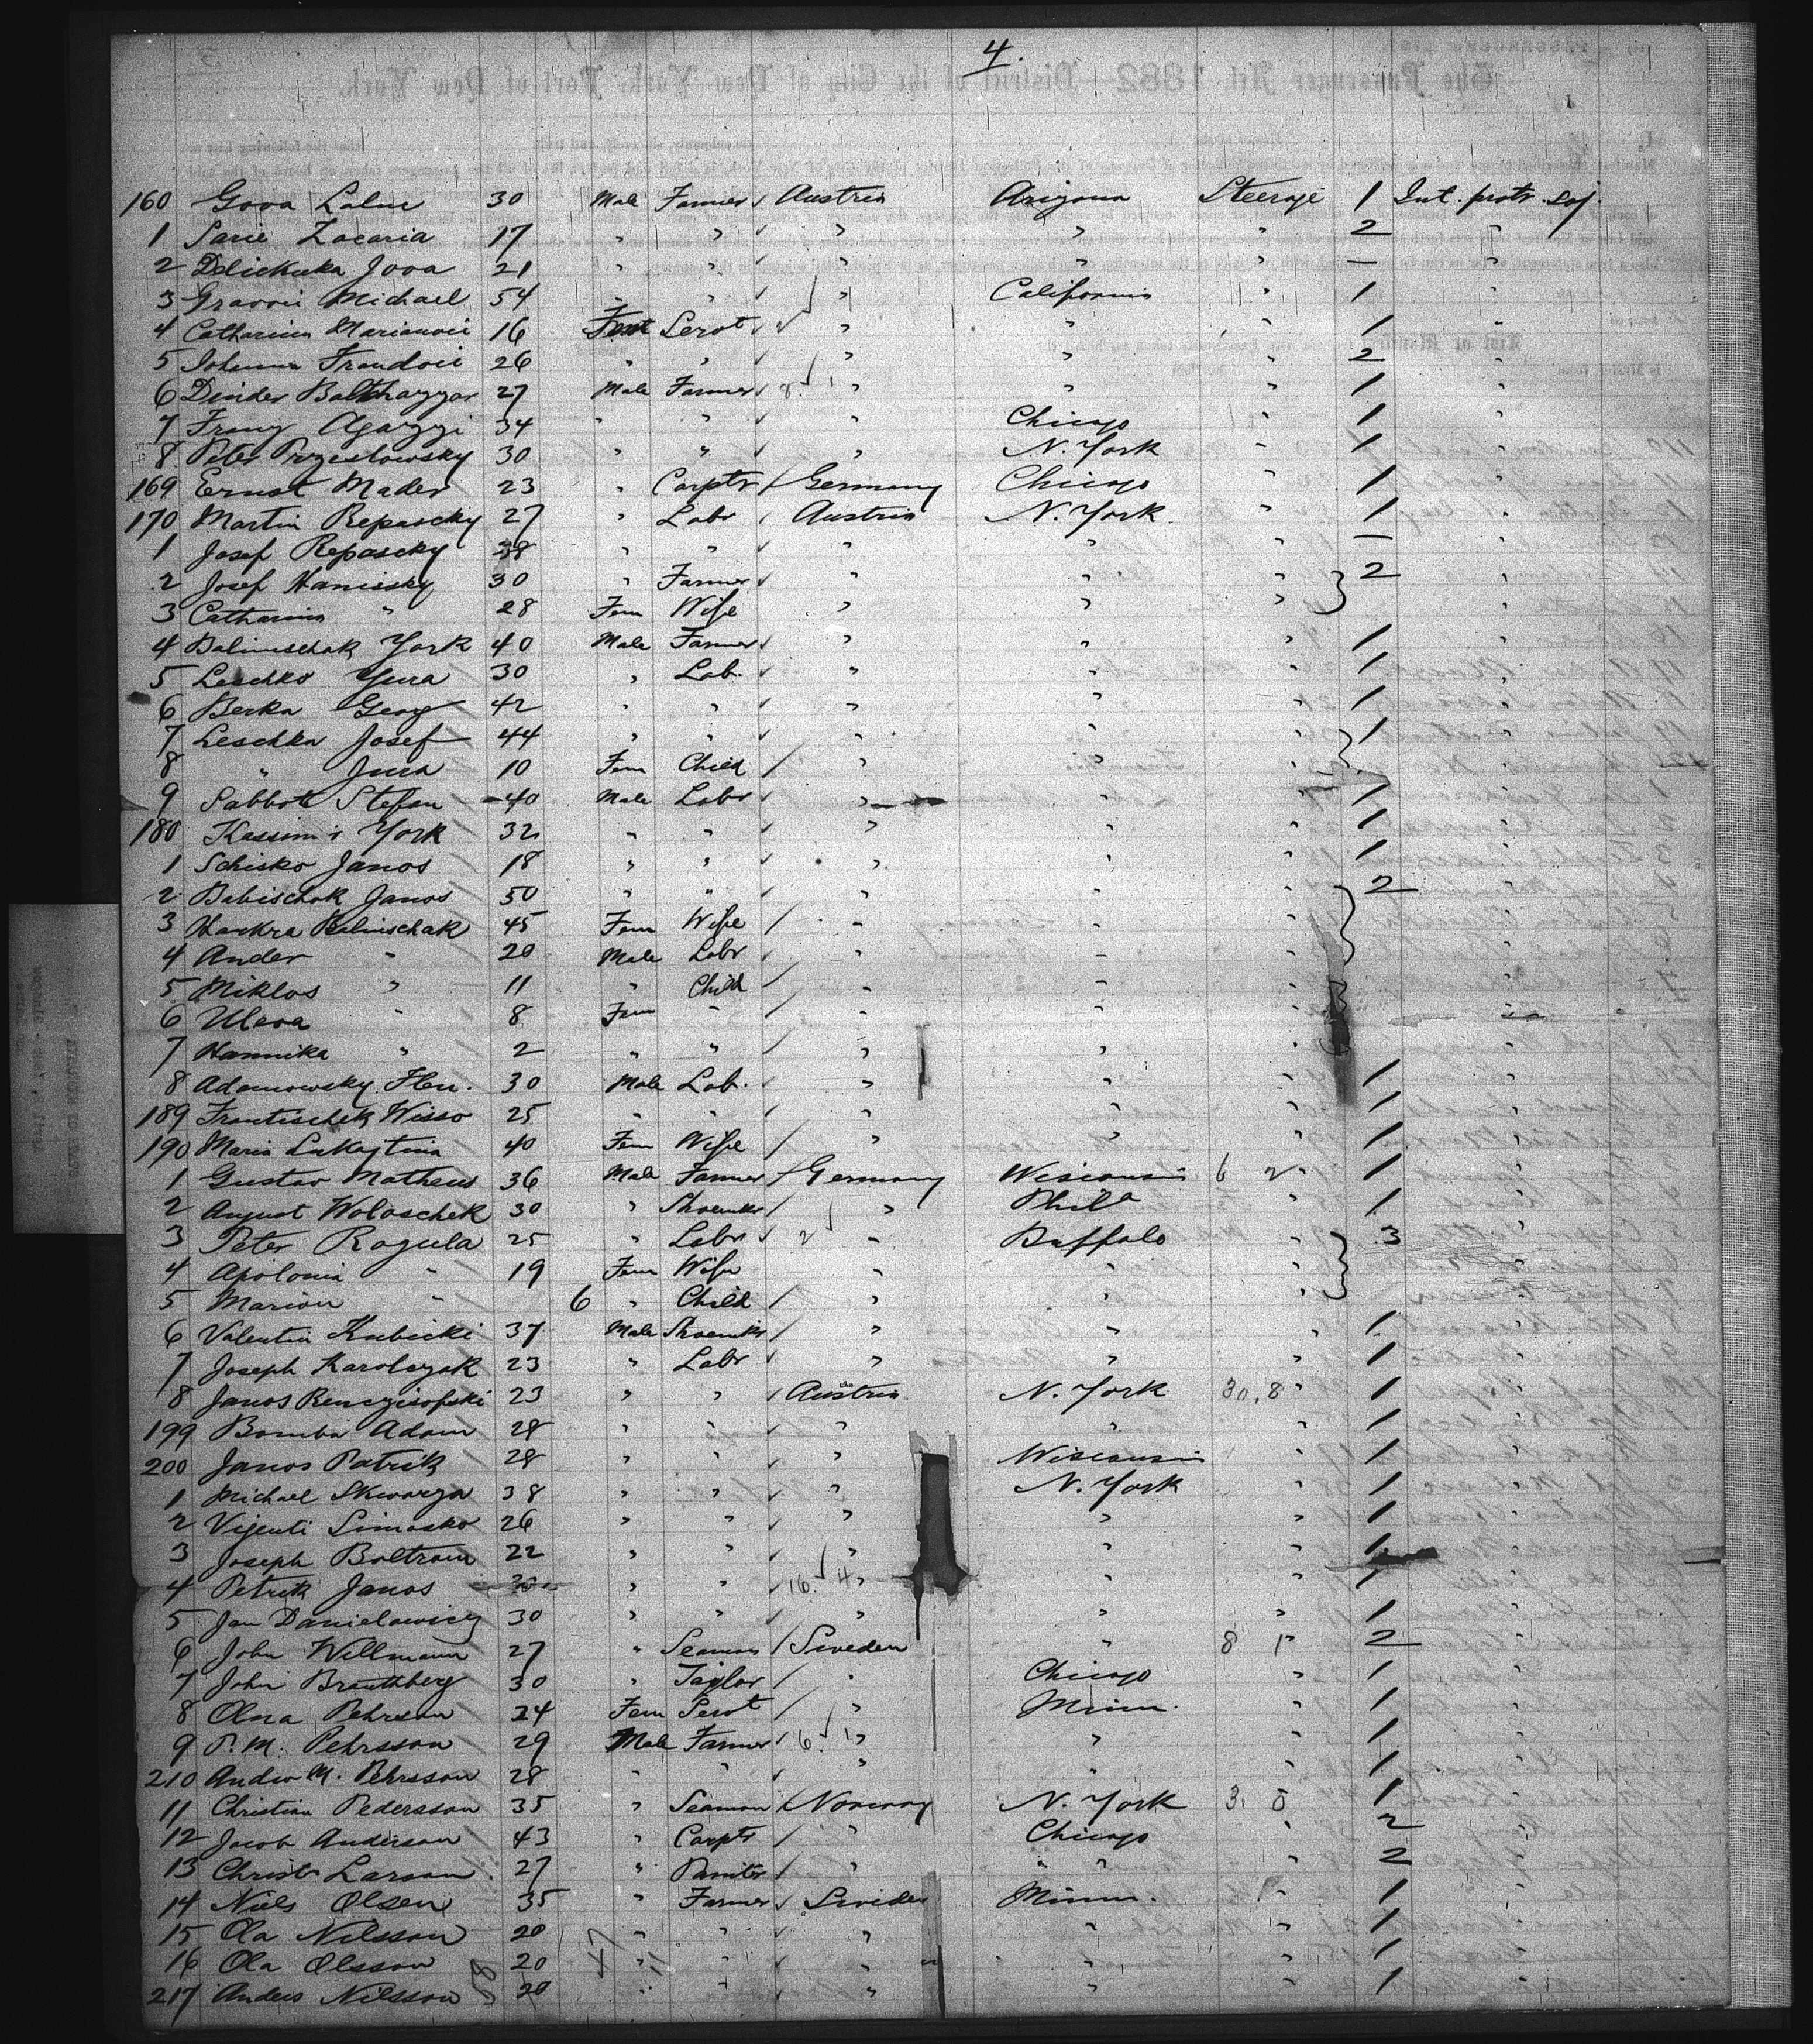 4.
160 Gova Lalue 30 Male Farmer Austria Arizona Steerage 1 Int. protr. soj.
1 Sarie Zacaria 17 " " " " " 2 "
2 Jova 21 " " " " " — "
3 Michael 54 " " " California " 1 "
4 Catharina Marianovic 16 Fem Servt " " " 1 "
5 Johanna 26 " " " " " 2 "
6 Dinder Balthazzar 27 Male Farmer 8. 1 " " " 1 "
7 Franz Agazzi 34 " " " Chicago " 1 "
8 Peter Przeslowsky 30 " " " N. York " 1 "
169 Ernst Mader 23 " Carptr Germany Chicago " 1 "
170 Martin Repascky 27 " Labr Austria N. York " 1 "
1 Josef Repascky 38 " " " " " — "
2 Josef Hanissky 30 " Farmer " " " 2 "
3 Catharina " 28 Fem Wife " " "
4 Balinischak York 40 Male Farmer " " " 1 "
5 Leschko Yura 30 " Lab. " " " 1 "
6 Berka Georg 42 " " " " " 1 "
7 Leschka Josef 44 " " " " " 1 "
8 " Jura 10 Fem Child " " "
9 Sabbota Stefan 40 Male Labr " " " 1 "
180 Kassimir York 32 " " " " " 1 "
1 Schisko Janos 18 " " " " " 1 "
2 Babischak Janos 50 " " " " " 2 "
3 Balinischak 45 Fem Wife " " "
4 Ander " 20 Male Labr " " "
5 Miklos " 11 " Child " " "
6 " 8 Fem " " " "
7 Hannika " 2 " " " " "
8 Adamowsky Flen. 30 Male Lab. " " " 1 "
189 Frantischek Wisso 25 " " " " " 1 "
190 Maria 40 Fem Wife " " " 1 "
1 Gustav Matheus 36 Male Farmer Germany Wisconsin 6 2 " 1 "
2 August Woloschek 30 " Shoemkr " Phila " 1 "
3 Peter Rogula 25 " Labr 2 " Buffalo " 3 "
4 Apolonia " 19 Fem Wife " " "
5 Marion " 6 " Child " " "
6 Valentin Kubicki 37 Male Shoemkr " " " 1 "
7 Joseph Karolczak 23 " Labr " " " 1 "
8 Janos 23 " " Austria N. York 30, 8 " 1 "
199 Bomba Adam 28 " " " " " 1 "
200 Janos Patrik 28 " " " Wisconsin " 1 "
1 Michael Skwarza 38 " " " N. York " 1 "
2 Simasko 26 " " " " " 1 "
3 Joseph Boltrom 22 " " " " " 1 "
4 Petrik Janos " " 16. 4 " " " 1 "
5 Jan Danielowicz 30 " " " " " 1 "
6 John Willmann 27 " Seaman Sweden " 8 1 " 2 "
7 John Brauthberg 30 " Taylor " Chicago " 1 "
8 Olna Pehrson 24 Fem Servt " Minn. " 1 "
9 P. M. Pehrsson 29 Male Farmer 6. 1 " " " 1 "
210 Andw M. Pehrsson 28 " " " " " 1 "
11 Christian Pedersson 35 " Seaman Norway N. York 3. 0 1 "
12 Jacob Anderson 43 " Carptr " Chicago " 2 "
13 Christ Larson 27 " Painter " " " 2 "
14 Niels Olsen 35 " Farmer Sweden Minn. " 1 "
15 Ola Nilsson 20 " " " " " 1 "
16 Ola Olsson 20 " " " " " 1 "
217 Anders Nilsson 20 " " " " " 1 "